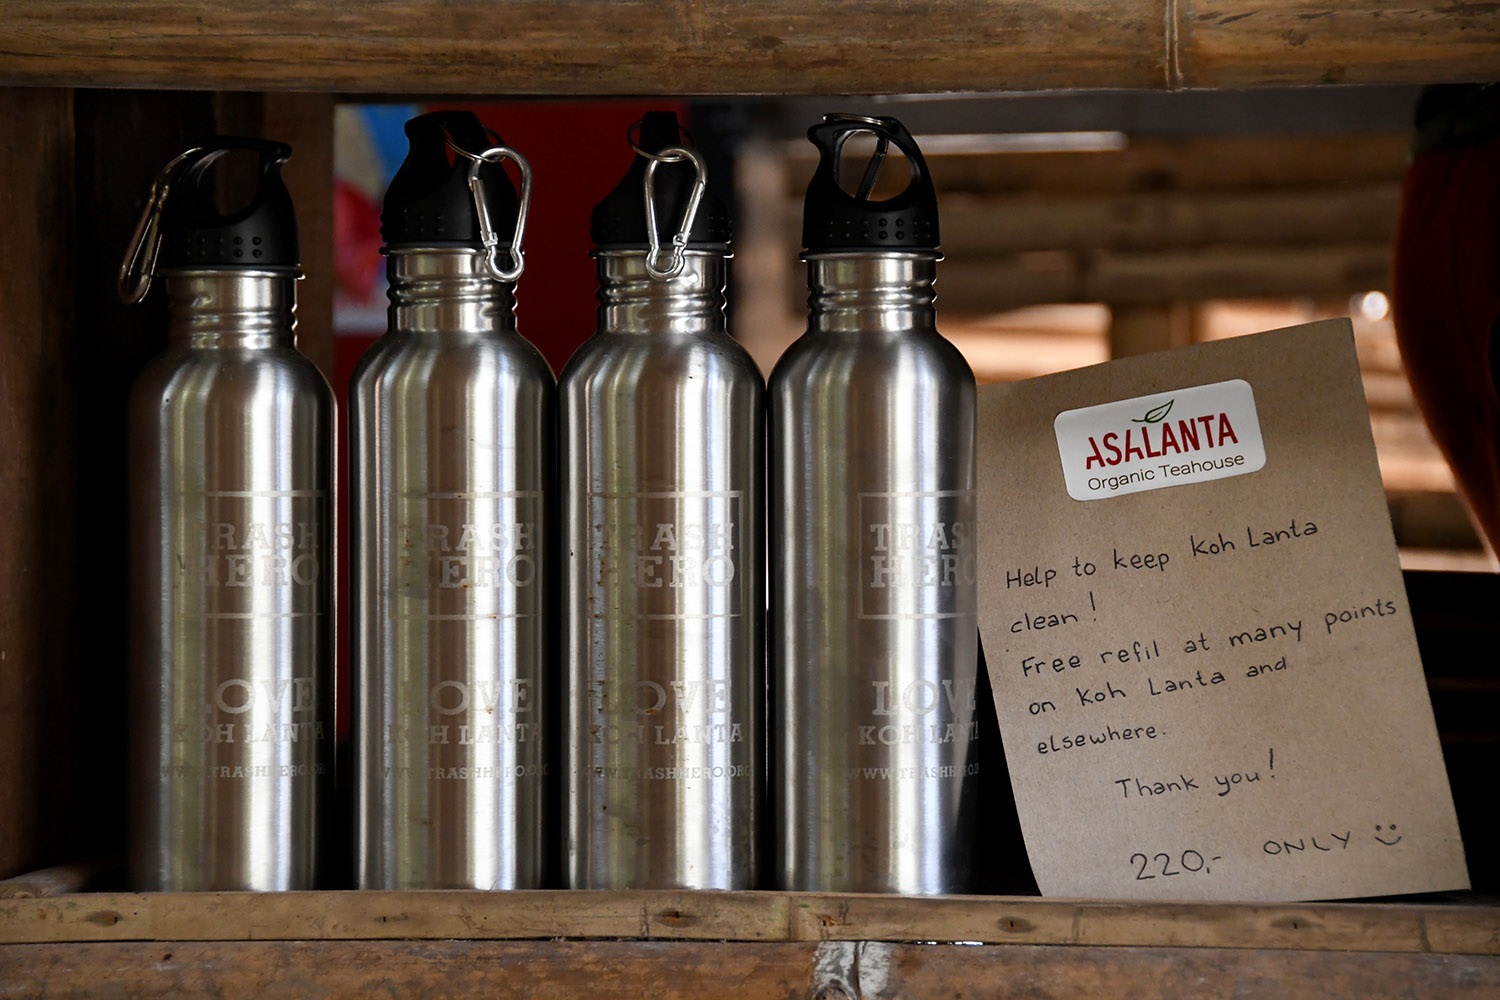 TRASH
HERO
LOVE
KOH LANTA
WWW.TRASHHERO.ORG
TRASH
HERO
LOVE
KOH LANTA
WWW.TRASHHERO.ORG
TRASH
HERO
LOVE
KOH LANTA
WWW.TRASHHERO.ORG
TRASH
HERO
LOVE
KOH LANTA
WWW.TRASHHERO.O
ASALANTA
Organic Teahouse
Help to keep Koh Lanta
clean!
Free refil at many points
on Koh Lanta and
elsewhere.
Thank you!
220,- ONLY